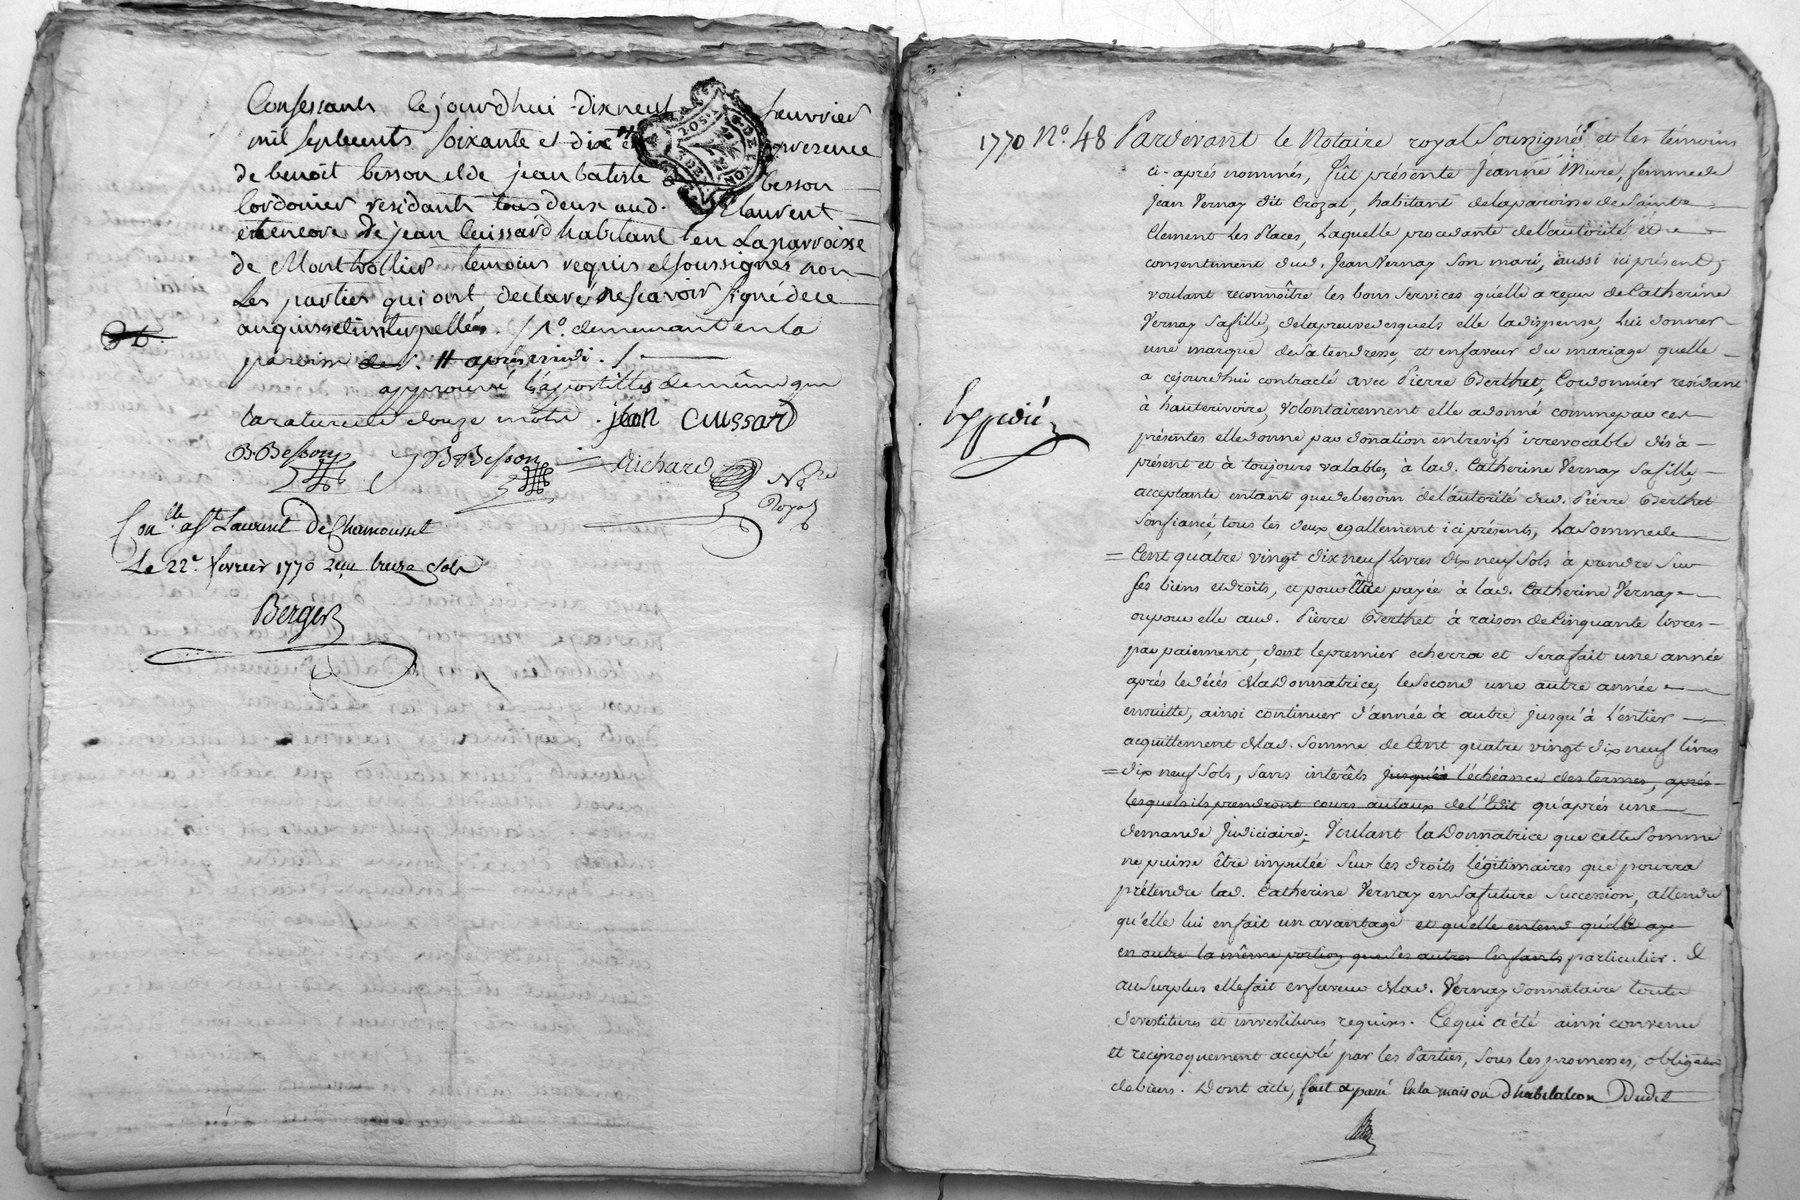 Confessants Cejourdhui dixneuf feuvrier
mil septcents soixante et dix en presence
de benoit besson et de jean batiste besson
Cordonier residants tous deux aud. St laurent
et encore de jean Cuissard habitant en La parroisse
de Montrollier temoins requis et soussignés non
Les parties qui ont declaré ne scavoir signé de ce
enquises et interpellés. / 1º. demeurant en la
paroisse de s. 11 apres midi. /
approuvé les apostilles de même que
La rature de douze mots. jean CUISSARD
BBesson JBBesson Richard Nre
Royal
Con.lle a St Laurent De Chamousset
Le 22e. fevrier 1770 Reçu treize sols
Berger
1770 Nº. 48 Pardevant le Notaire royal Soussigné et les témoins
ci-aprés nommés, fût présente Jeanne Mure, femme de
Jean Vernay dit Crozat, habitant de la paroisse de Sainte
Clement Les Places, Laquelle procedante de l'autorité et
consentiment dud. Jean Vernay Son mari, aussi ici présent,
voulant reconnoître les bons services qu'elle a reçus de Catherine
Vernay Sa fille, de la preuve desquels elle la dispense, Lui donner
une marque de Sa tendresse, et en faveur du mariage quelle
a cejourdhui contracté avec Pierre Berthet, Cordonnier residant
à hauterivoire, Volontairement elle a donné comme par ces
Expedié
présentes elle donne par donation entrevifs irrevocable dés à
présent et à toujours valable, à lad. Catherine Vernay Sa fille,
acceptante entant que de besoin de l'autorité dud. Pierre Berthet
Son fiancé, tous les deux egallement ici présents, La Somme de
= Cent quatre vingt dix neuf Livres dix neuf Sols à prendre Sur
Ses biens et droits, et pour être payée à lad. Catherine Vernay
ou pour elle aud. Pierre Berthet à raison de Cinquante livres
par paiement, dont le premier echerra et Sera fait une année
aprés le décés de la Donnatrice, le Second une autre année
ensuitte, ainsi continuer d'année à autre jusqu'à l'entier
acquittement de lad. Somme de Cent quatre vingt dix neuf livres
= dix neuf Sols, Sans interêts jusqu'à l'échéance des termes, aprés
lesquels ils prendront cours au taux de l'Edit qu'aprés une
demande judiciaire; Voulant la Donnatrice que cette Somme
ne puisse être imputée Sur les droits légitimaires que pourra
prétendre lad. Catherine Vernay en Sa future Succession, attendu
qu'elle lui en fait un avantage et qu'elle entend qu'elle aye
en outre la même portion que Ses autres Enfants particulier. Et
au Surplus elle fait en faveur de lad. Vernay donnataire toutes
devestitures et investitures requises. Ce qui a été ainsi convenu
et reciproquement accepté par les Parties, Sous les promesses, obligation
de biens. Dont acte, fait & passé En la maison d'habitation Dudit